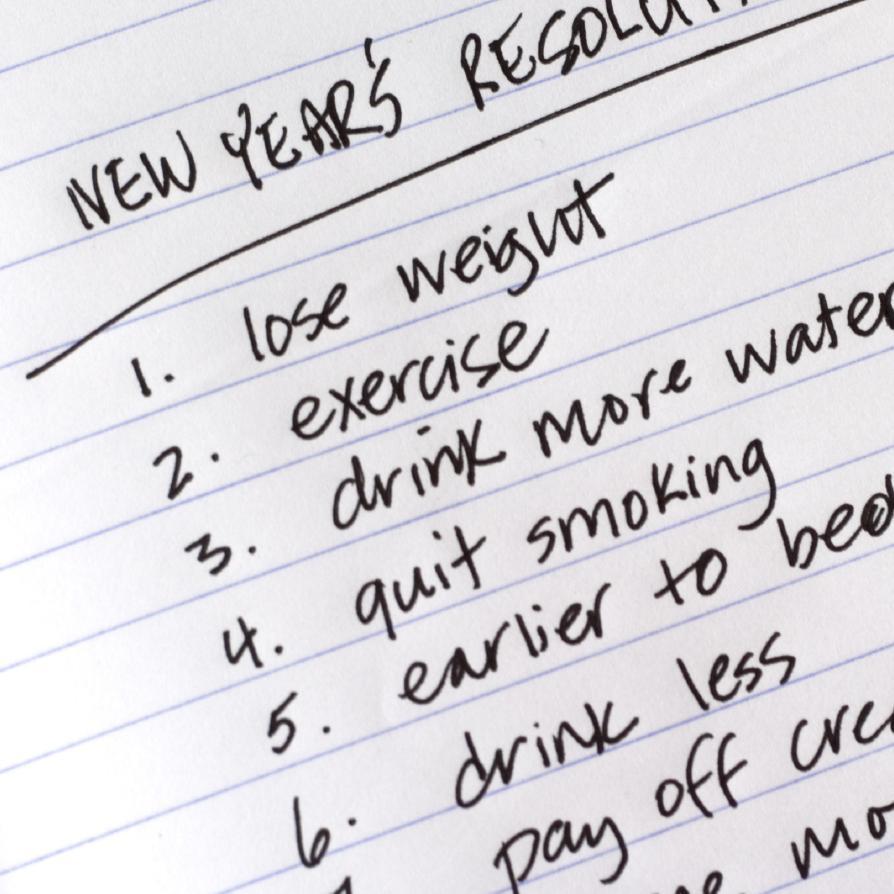 NEW YEAR'S
1. lose weight
2. exercise
3. drink more water
4. quit smoking
5. earlier to bed
6. drink less
pay off